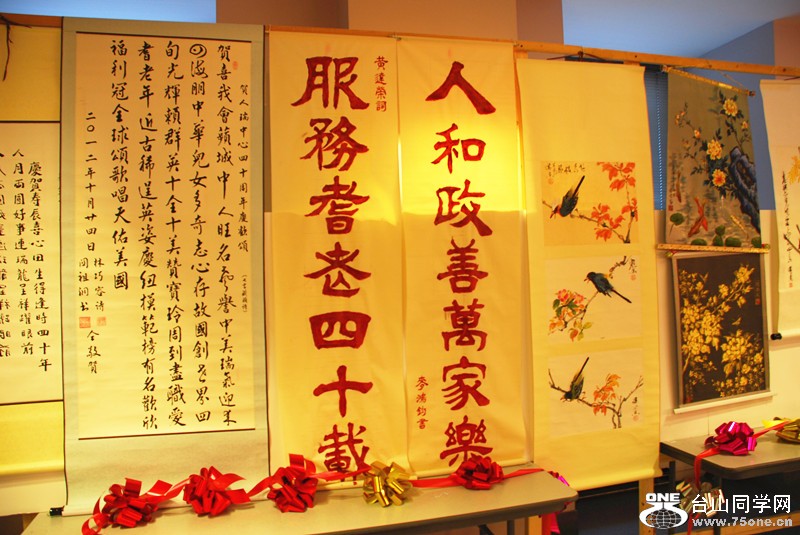 人和政善萬家樂
黃達榮詞
服務耆老四十載
賀人瑞中心四十周年慶歡頌
賀喜我會蘋城中人旺名參譽中美瑞氣迎來
四海朋中華兒女多奇志心存故國創世界四
旬光輝賴群英十全十美贊寶玲周到盡職愛
耆老年近古稀逞英姿慶紐模範榜有名歡欣
福利冠全球頌歌唱天佑美國
二〇一二年十月廿四日
林巧容詩
周祖潤書
仝敬賀
慶賀壽辰喜心田生得逢時四十年
人月兩圓好事連瑞龍呈祥耀眼前
ONE
台山同学网
www.75one.cn